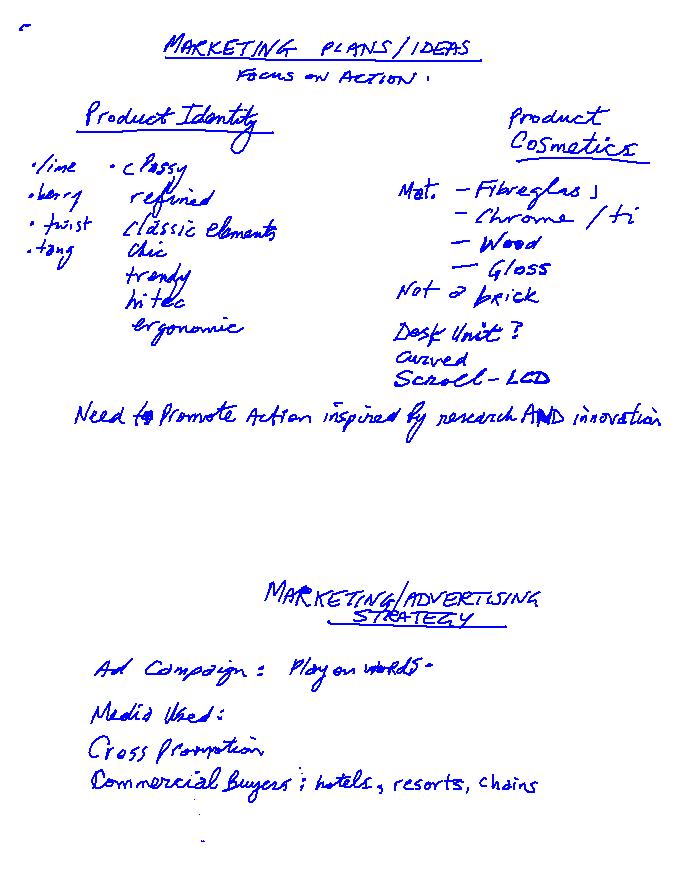 MARKETING PLANS/IDEAS
FOCUS ON ACTION.
Product Identity
• lime
• berry
• twist
• tang
• classy
refined
classic elements
chic
trendy
hitec
ergonomic
Product
Cosmetics
Mat. - Fibreglass
- Chrome / ti
- Wood
- Gloss
Not a brick
Desk Unit?
Curved
Scroll - LCD
Need to Promote Action inspired by research AND innovation
MARKETING/ADVERTISING
STRATEGY
Ad Campaign: Play on words-
Media Used:
Cross Promotion
Commercial Buyers: hotels, resorts, chains